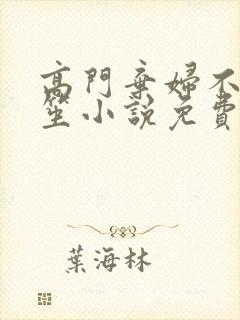 高門棄婦不
笙小說免費
葉海林